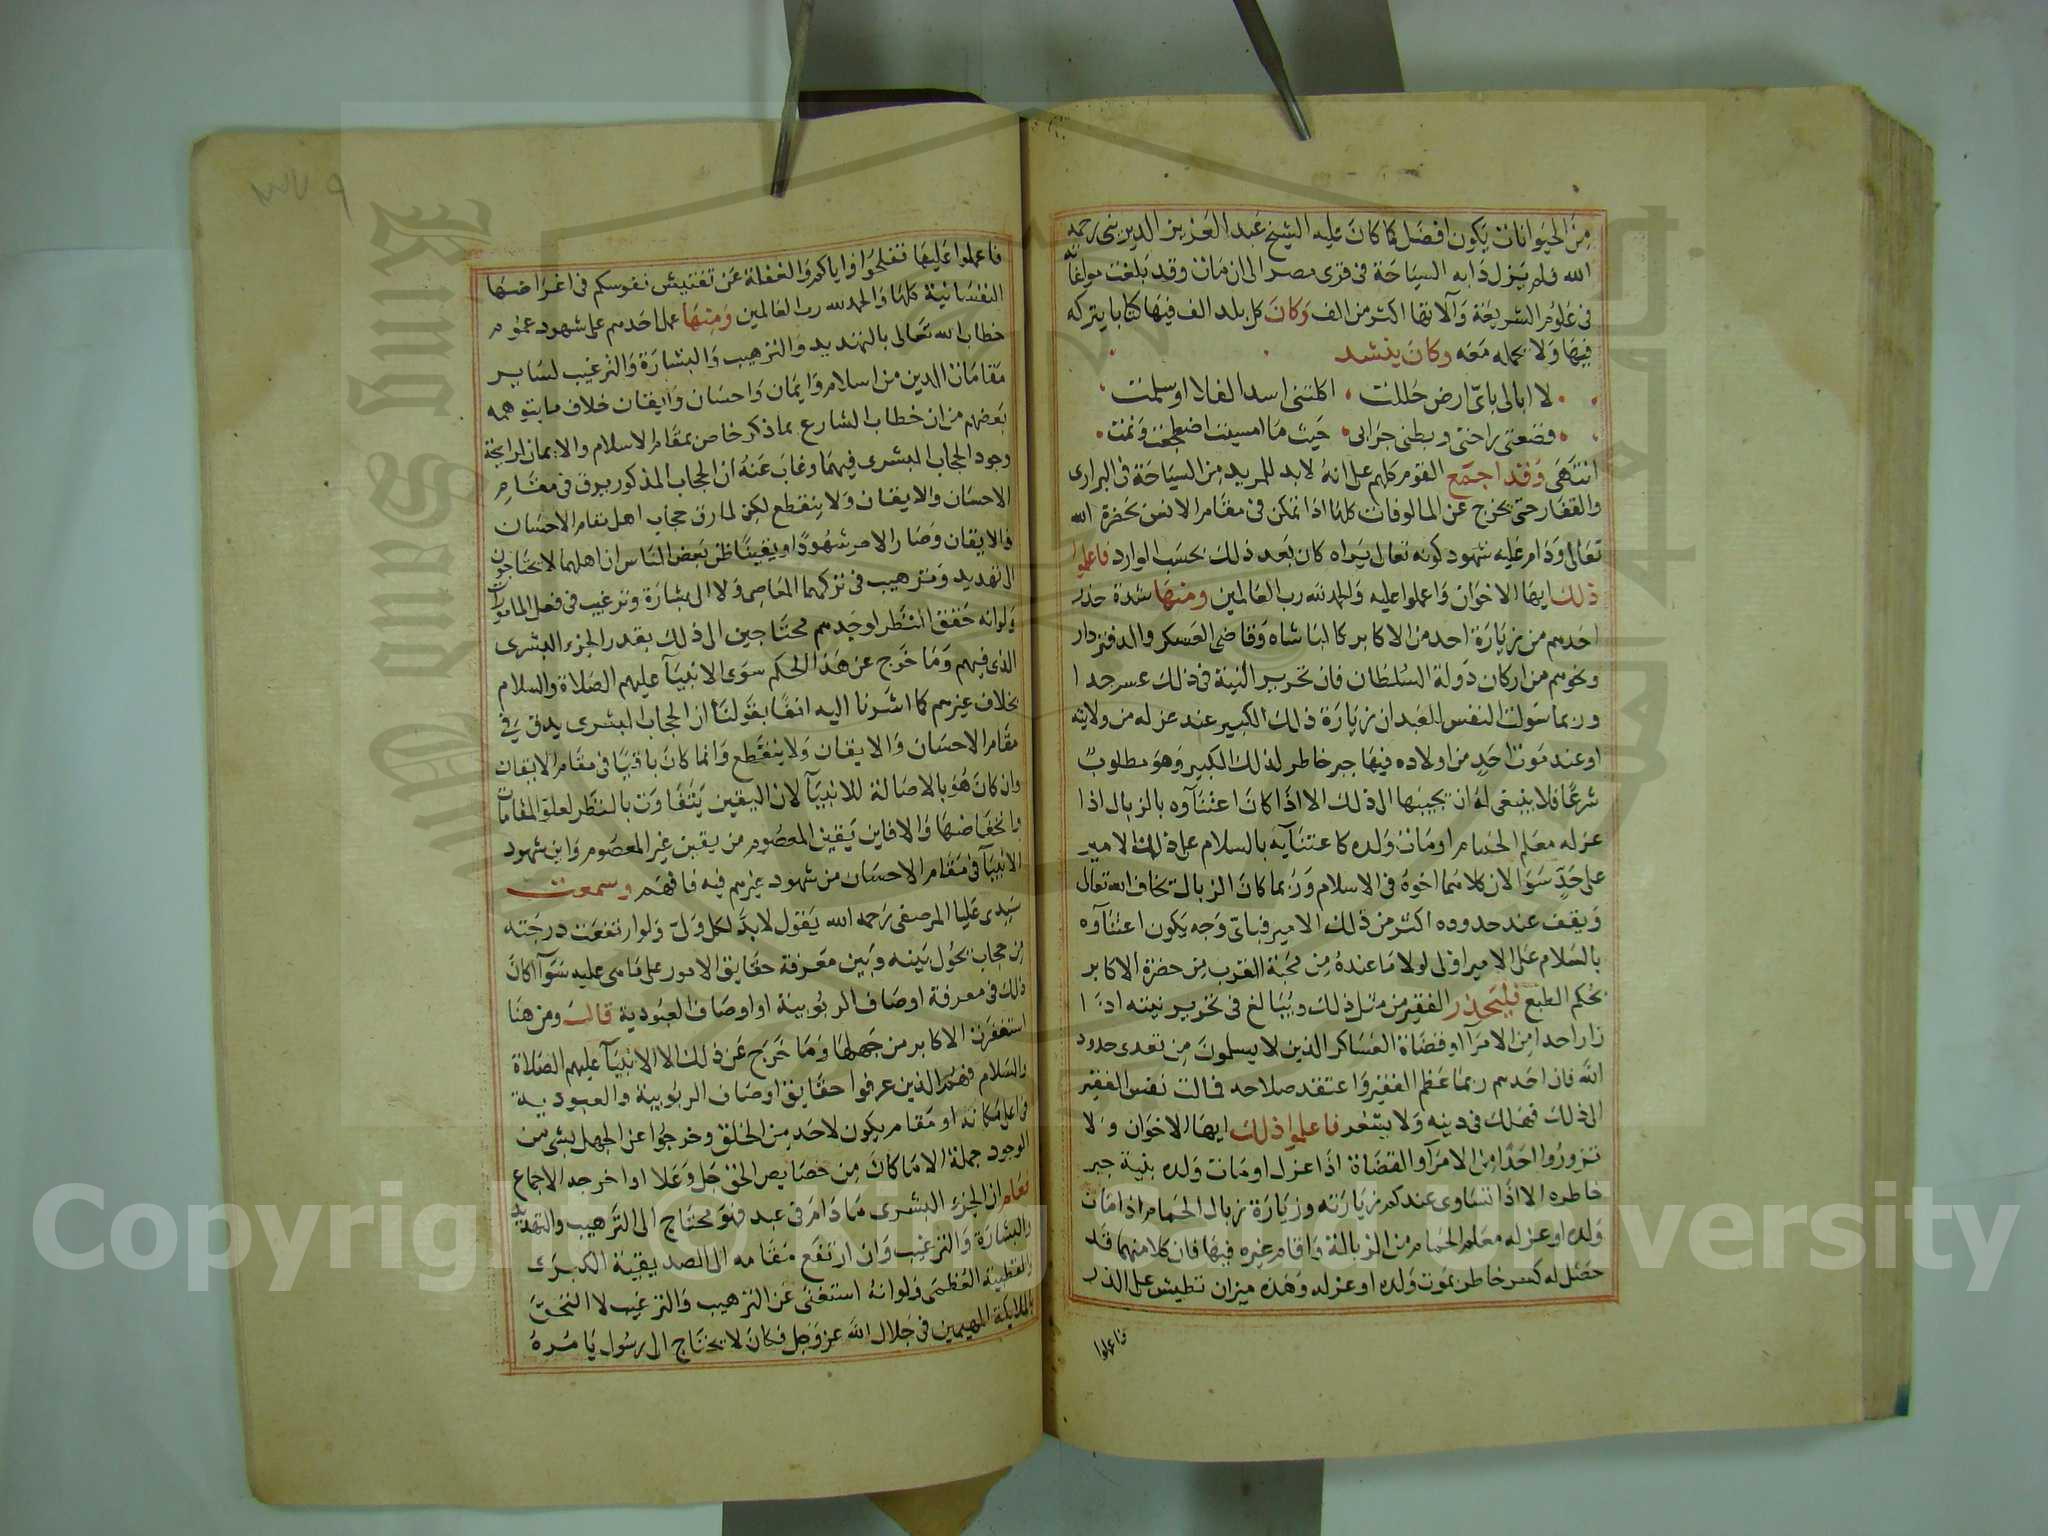 من الحيوانات يكون افضل كما كان عليه الشيخ عبد العزيز الديريني رحمه
الله فلم يزل دابه السياحة في قرى مصر الى ان مات وقد بلغت مولفاته
في علوم الشريعة وآلاتها اكثر من الف وكان كل بلد الف فيها كتابا يتركه
فيها ولا يحمله معه وكان ينشد
لا ابالي باي ارض حللت اكلتني اسد الفلا او سلمت
قصعتي راحتي وبطني جرابي حيث ما امسيت اضطجعت ونمت
انتهى وقد اجمع القوم كلهم على انه لابد للمريد من السياحة في البراري
والقفار حتى يخرج عن المالوفات كلها اذا تمكن في مقام الانس بحضرة الله
تعالى ودام عليه شهود كونه تعالى يراه كان بعد ذلك بحسب الوارد فاعلموا
ذلك ايها الاخوان واعملوا عليه والحمد لله رب العالمين ومنها شدة حذر
احدهم من زيارة احد من الاكابر كالباشاه وقاضي العسكر والدفتردار
ونحوهم من اركان دولة السلطان فان تحرير النية في ذلك عسر جدا
وربما سولت النفس للعبد ان زيارة ذلك الكبير عند عزله من ولايته
او عند موت احد من اولاده فيها جبر خاطر لذلك الكبير وهو مطلوب
شرعا فلا ينبغي له ان يجيبها الى ذلك الا اذا كان اعتناوه بالزبال اذا
عزله معلم الحمام او مات ولده كاعتنايه بالسلام على ذلك الامير
على حد سوا لان كلامنهما اخوه في الاسلام وربما كان الزبال يخاف الله تعالى
ويقف عند حدوده اكثر من ذلك الامير فباي وجه يكون اعتناوه
بالسلام على الامير اولى لولا ما عنده من محبة القرب من حضرة الاكابر
بحكم الطبع فليحذر الفقير من مثل ذلك ويبالغ في تحرير نيته اذا
زار احدا من الامرآ او قضاة العساكر الذين لا يسلمون من تعدى حدود
الله فان احدهم ربما عظم الفقير واعتقد صلاحه فمالت نفس الفقير
الى ذلك فهلك في دينه ولا يشعر فاعلموا ذلك ايها الاخوان ولا
تزوروا احدا من الامرآ والقضاة اذا عزل او مات ولده بنية جبر
خاطره الا اذا تساوى عندكم زيارته وزيارة زبال الحمام اذا مات
ولده او عزله معلم الحمام من الزبالة واقام غيره فيها فان كلامنهما قد
حصل له كسر خاطر بموت ولده او عزله وهذه ميزان تطيش على الذر
فاعملوا
فاعملوا عليها تفلحوا واياكم والغفلة عن تفتيش نفوسكم في اغراضها
النفسانية كلها والحمد لله رب العالمين ومنها عمل احدهم على شهود عموم
خطاب الله تعالى بالتهديد والترهيب والبشارة والترغيب لساير
مقامات الدين من اسلام وايمان واحسان وايقان خلاف ما يتوهمه
بعضهم من ان خطاب الشارع بما ذكر خاص بمقام الاسلام والايمان
وجود الحجاب البشري فيهما وغاب عنه ان الحجاب المذكور يرق في مقام
الاحسان والايقان ولا ينقطع لكن لما رق حجاب اهل مقام الاحسان
والايقان وصار الامر شهودا او يقينا ظن بعض الناس ان اهلهما لا يحتاجون
الى تهديد وترهيب في تركهما المعاصي ولا الى بشارة وترغيب في فعل المامورات
ولو انه حقق النظر لوجدهم محتاجين الى ذلك بقدر الجزء البشري
الذي فيهم وما خرج عن هذا الحكم سوى الانبيآ عليهم الصلاة والسلام
بخلاف غيرهم كما اشرنا اليه انفا بقولنا ان الحجاب البشري يدق في
مقام الاحسان والايقان ولا ينقطع وانما كان باقيا في مقام الايقان
وان كان هو بالاصالة للانبيآ لان اليقين يتفاوت بالنظر لعلو المقامات
وانخفاضها والا فاين يقين المعصوم من يقين غير المعصوم واين شهود
الانبيآ في مقام الاحسان من شهود غيرهم فيه فافهم وسمعت
سيدي عليا المرصفي رحمه الله يقول لابد لكل ولي ولو ارتفعت درجته
من حجاب يحول بينه وبين معرفة حقايق الامور على ما هي عليه سوآ اكان
ذلك في معرفة اوصاف الربوبية او اوصاف العبودية قالــ ومن هنا
استغفرت الاكابر من جهلها وما خرج عن ذلك الا الانبيآ عليهم الصلاة
والسلام فهم الذين عرفوا حقايق اوصاف الربوبية والعبودية
في اعلى مكانة او مقام يكون لاحد من الخلق وخرجوا عن الجهل بشي من
الوجود جملة الا ما كان من خصايص الحق جل وعلا او اخرجه الاجماع
فعلم ان الجزء البشري ما دام في عبد فهو محتاج الى الترهيب والتهديد
والبشارة والترغيب وان ارتفع مقامه الى الصديقية الكبرى
والقطبية العظمى ولو انه استغنى عن الترهيب والترغيب لا التحق
بالملايكة المهيمين في جلال الله عز وجل فكان لا يحتاج الى رسول يامره